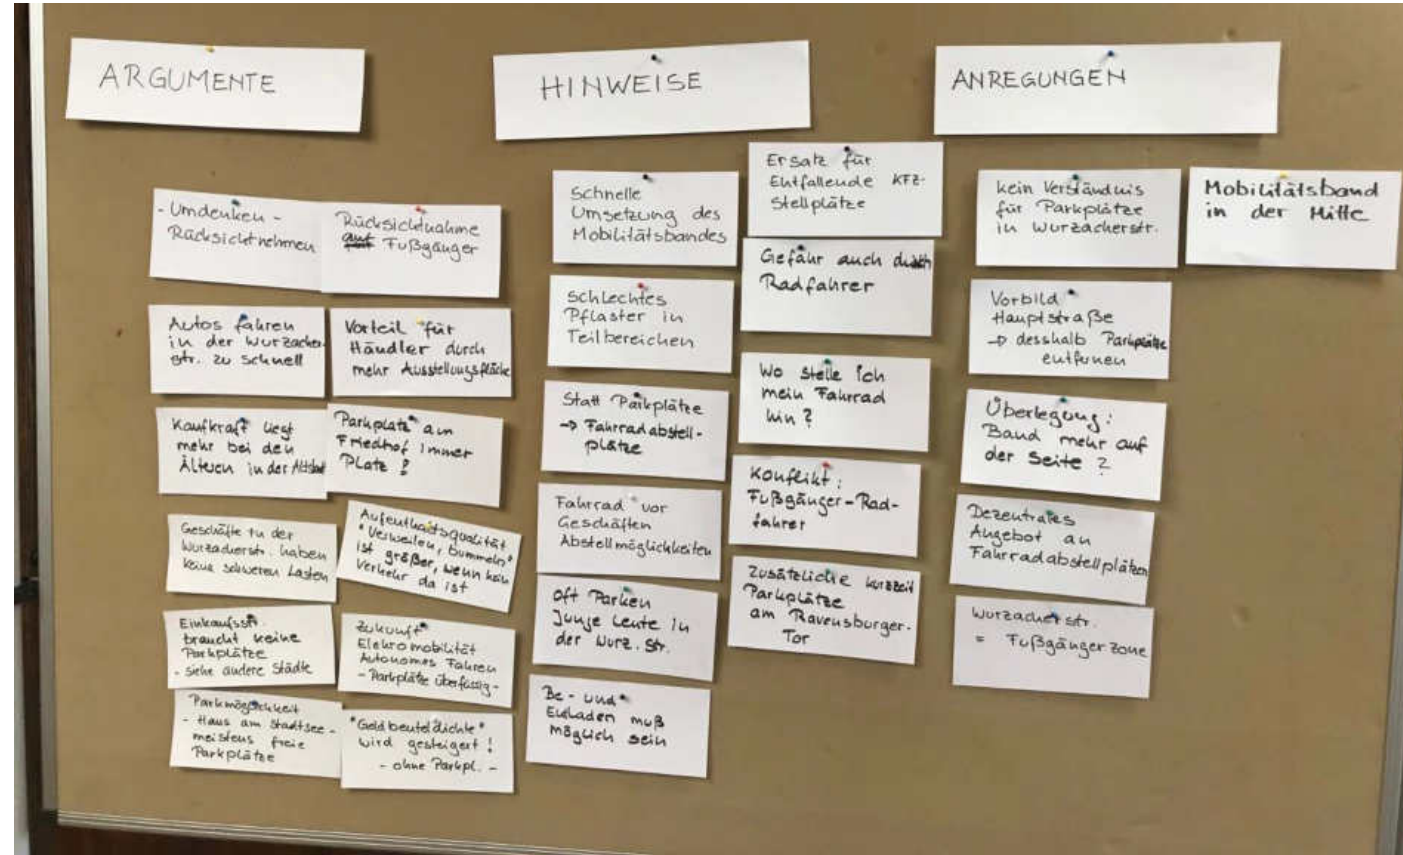 ARGUMENTE
- Umdenken -
Rücksichtnehmen
Rücksichtnahme
auf Fußgänger
Autos fahren
in der Wurzacher
str. zu schnell
Vorteil für
Händler durch
mehr Ausstellungsfläche
Kaufkraft liegt
mehr bei den
Älteren in der Altstadt
Parkplatz am
Friedhof immer
Platz ?
Geschäfte in der
Wurzacherstr. haben
keine schweren Lasten
Aufenthaltsqualität
"Verweilen, bummeln"
ist größer, wenn kein
Verkehr da ist
Einkaufsstr.
braucht keine
Parkplätze
- siehe andere Städte
Zukunft
Elekromobilität
Autonomes Fahren
- Parkplätze überfüssig -
Parkmöglichkeit
- Haus am Stadtsee -
meistens freie
Parkplätze
"Geldbeuteldichte"
wird gesteigert !
- ohne Parkpl. -
HINWEISE
Schnelle
Umsetzung des
Mobilitätsbandes
Schlechtes
Pflaster in
Teilbereichen
Statt Parkplätze
→ Fahrradabstell-
plätze
Fahrrad vor
Geschäften
Abstellmöglichkeiten
Oft Parken
Junge Leute in
der Wurz. Str.
Be- und
Entladen muß
möglich sein
Ersatz für
Entfallende KFZ-
Stellplätze
Gefahr auch durch
Radfahrer
Wo stelle ich
mein Fahrrad
hin ?
Konflikt :
Fußgänger-Rad-
fahrer
Zusätzliche kurzzeit
Parkplätze
am Ravensburger-
Tor
ANREGUNGEN
kein Verständnis
für Parkplätze
in Wurzacherstr.
Vorbild
Hauptstraße
→ desshalb Parkplätze
entfernen
Überlegung :
Band mehr auf
der Seite ?
Dezentrales
Angebot an
Fahrradabstellplätzen
Wurzacherstr.
= Fußgängerzone
Mobilitätsband
in der Mitte